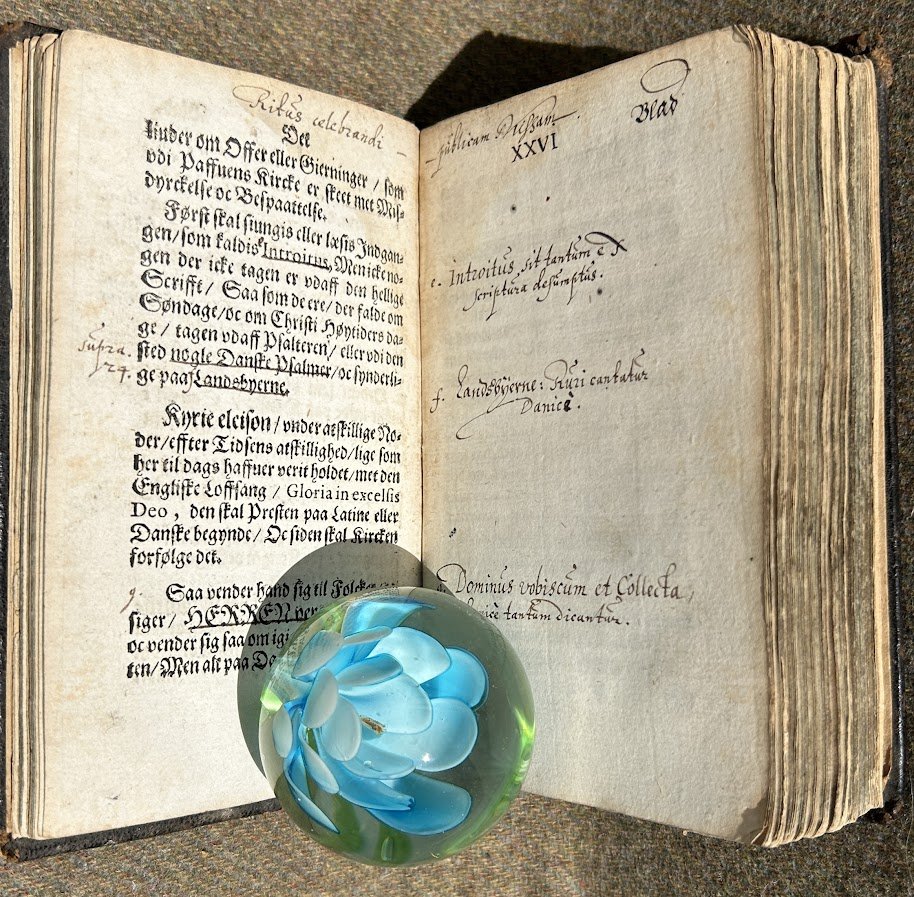 Ritus celebrandi
Det
hinder om Offer eller Gierninger / som
vdi Paffuens Kircke er skeet met Mis-
dyrckelse oc Bespaattelse.
Først skal siungis eller læsis Indgan-
gen/som kaldis Introitus, Men icke no-
gen der icke tagen er vdaff den hellige
Scrifft / Saa som de ere/der falde om
Søndage/oc om Christi Høytiders da-
ge / tagen vdaff Psalteren/ eller vdi den
sted nogle Danske Psalmer/oc synderli-
ge paa Landsbyerne.
supra.
Kyrie eleison / vnder atskillige No-
der/effter Tidsens atskillighed/lige som
her til dags haffuer verit holdet/met den
Engliske Loffsang / Gloria in excelsis
Deo, den skal Presten paa Latine eller
Danske begynde/ Oc siden skal Kircken
forfølge det.
g.
Saa vender hand sig til Folcket
siger/ HERREN
oc vender sig saa om igi
ten/Men alt paa Da
publicam Missam
XXVI
Blad
e. Introitus sit tantum è X
scriptura desumptus.
f. Landsbyerne: Ruri cantatur
Danicè.
Dominus vobiscum et Collecta,
tantum dicantur.